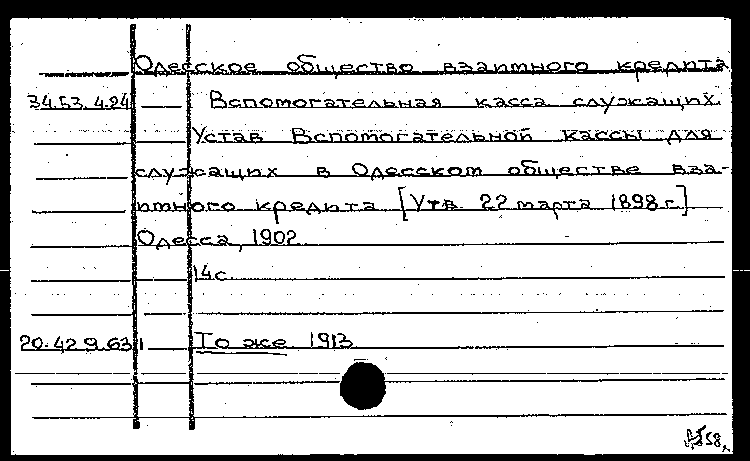 Одесское общество взаимного кредита
34.53.4.24 Вспомогательная касса служащих.
Устав Вспомогательной кассы для
служащих в Одесском обществе вза-
имного кредита [Утв. 22 марта 1898 г.]
Одесса, 1902.
14с.
20.42.9.63 То же 1913